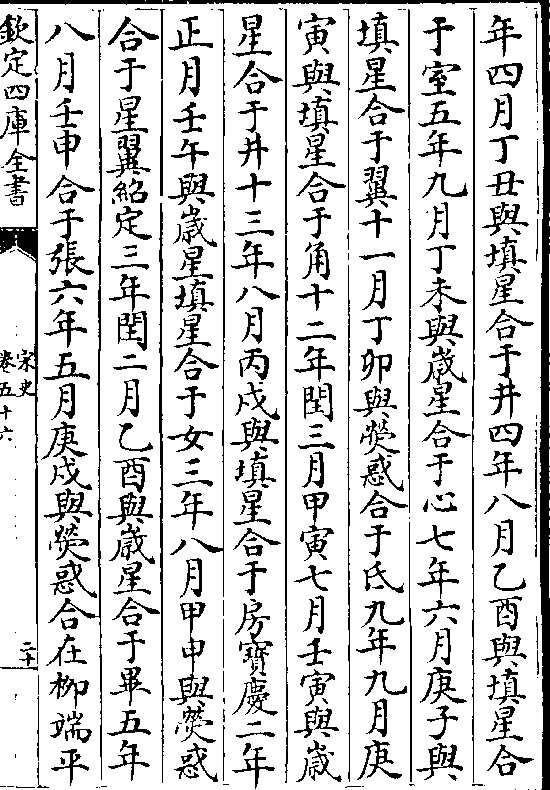 年四月丁丑與填星合于井四年八月乙酉與填星合
于室五年九月丁未與嵗星合于心七年六月庚子與
填星合于翼十一月丁卯與熒惑合于氐九年九月庚
寅與填星合于角十二年閏三月甲寅七月壬寅與嵗
星合于井十三年八月丙戌與填星合于房寳慶二年
正月壬午與嵗星填星合于女三年八月甲申與熒惑
合于星翼紹定三年閏二月乙酉與嵗星合于畢五年
八月壬申合于張六年五月庚戌與熒惑合在栁端平
欽定四庫全書
宋史
卷五十六
二十